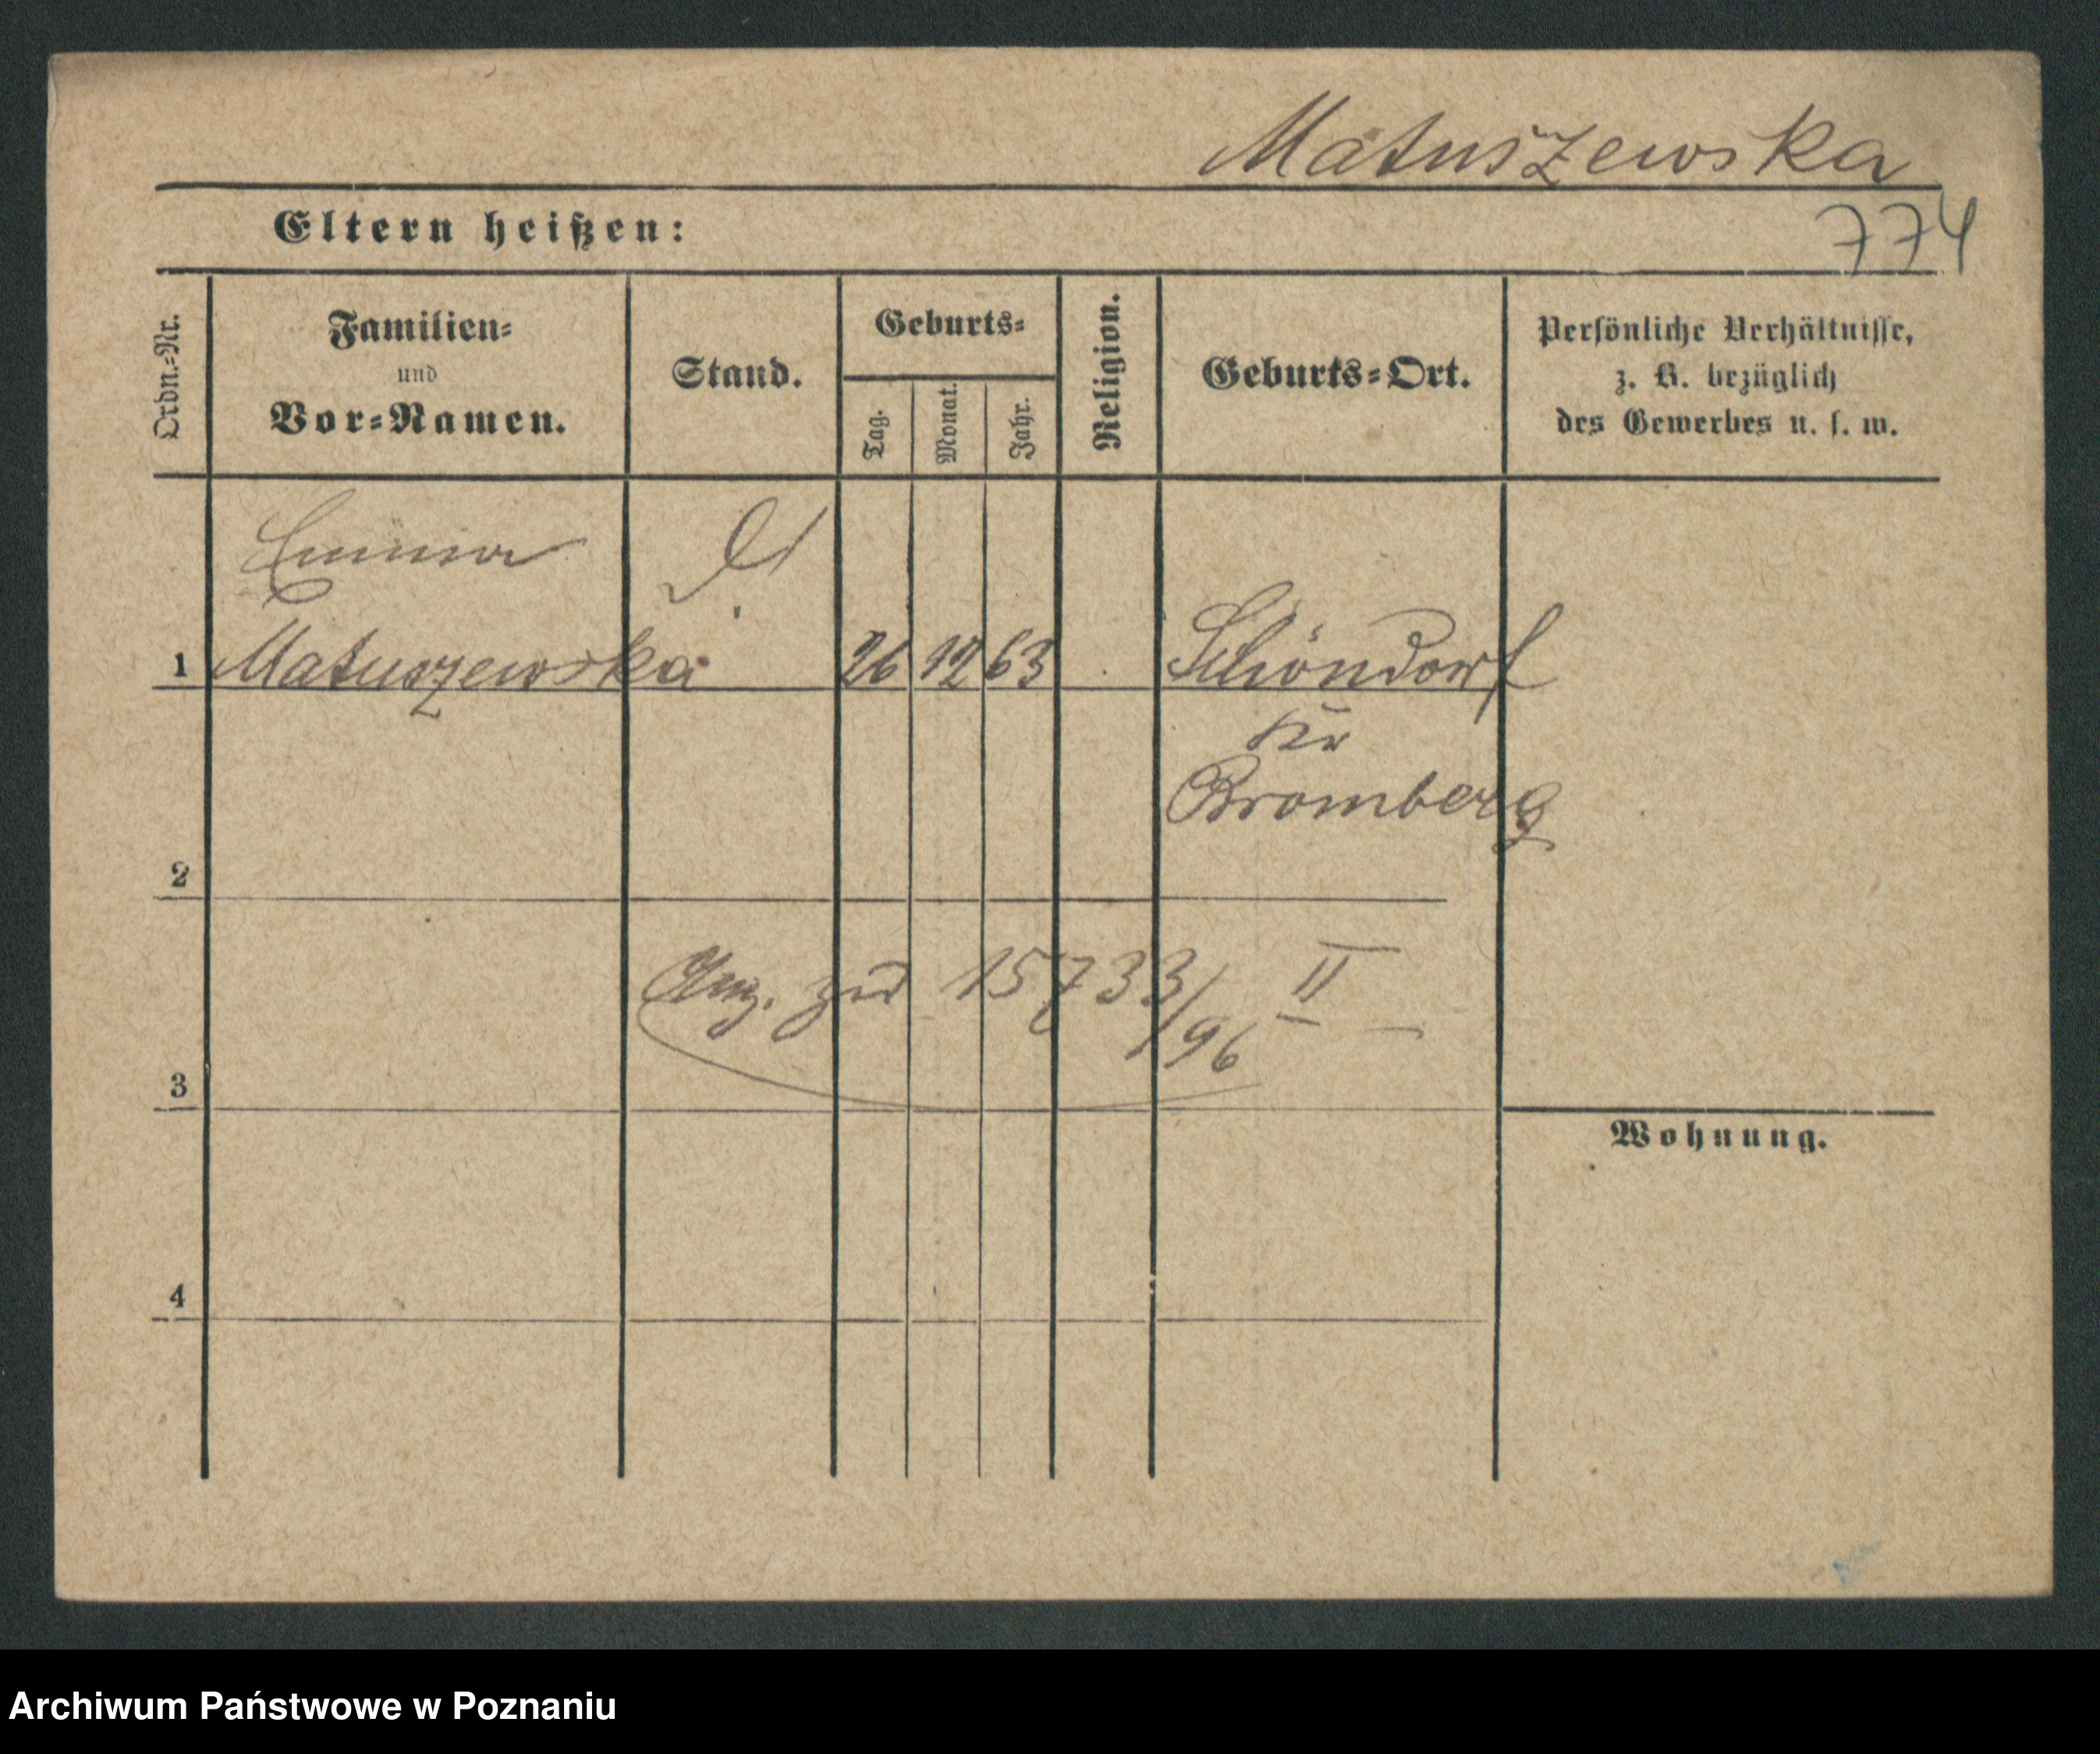 Matuszewska
Eltern heißen:
774
Ordn.-Nr.
Familien-
und
Vor-Namen.
Stand.
Geburts-
Tag.
Monat.
Jahr.
Religion.
Geburts-Ort.
Persönliche Verhältnisse,
z. B. bezüglich
des Gewerbes u. s. w.
Emma
1 Matuszewska 26 12 63 Schöndorf
Kr
Bromberg
2
Anz. zu 15733/96 II
3
Wohnung.
4
Archiwum Państwowe w Poznaniu